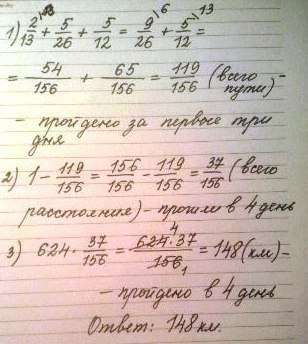 1) 2/13 \2 + 5/26 + 5/12 = 9/26 \6 + 5/12 \13 =
= 54/156 + 65/156 = 119/156 (всего пути) -
- пройдено за первые три
дня
2) 1 - 119/156 = 156/156 - 119/156 = 37/156 (всего
расстояния) - прошли в 4 день
3) 624 · 37/156 = 624 4 · 37/156 1 = 148 (км) -
- пройдено в 4 день
Ответ: 148 км.